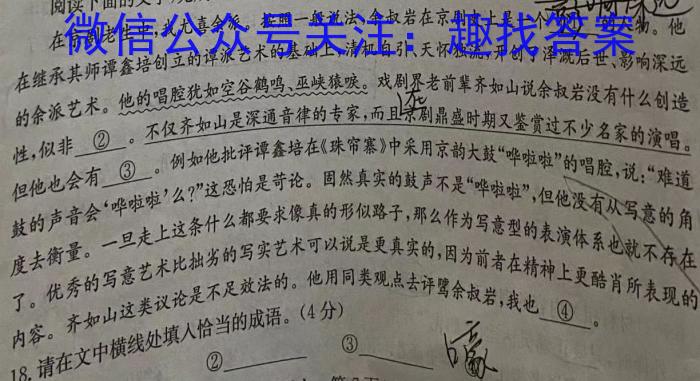 阅读下面的文字,完
在京剧老生中,我尤喜余派。按照一般说法,余叔岩在京剧史上是个 物。他
微信公众号关注：趣找答案
在继承其师谭鑫培创立的谭派艺术的基础上,清机自引、天怀独流,开创了泽溉后世、影响深远
的余派艺术。他的唱腔犹如空谷鹤鸣、巫峡猿唳。戏剧界老前辈齐如山说余叔岩没有什么创造
性,似非 ② 。不仅齐如山是深通音律的专家,而且京剧鼎盛时期又鉴赏过不少名家的演唱。
但他也会有 ③ 。例如他批评谭鑫培在《珠帘寨》中采用京韵大鼓“哗啦啦”的唱腔,说:“难道
鼓的声音会‘哗啦啦’么?”这恐怕是苛论。固然真实的鼓声不是“哗啦啦”,但他没有从写意的角
度去衡量。一旦走上这条什么都要求像真的形似路子,那么作为写意型的表演体系也就不存在
了。优秀的写意艺术比拙劣的写实艺术可以说是更真实的,因为前者在精神上更酷肖所表现的
内容。齐如山这类议论是不足效法的。他用同类观点去评骘余叔岩,我也 ④ 。
18. 请在文中横线处填入恰当的成语。(4分)
② ③